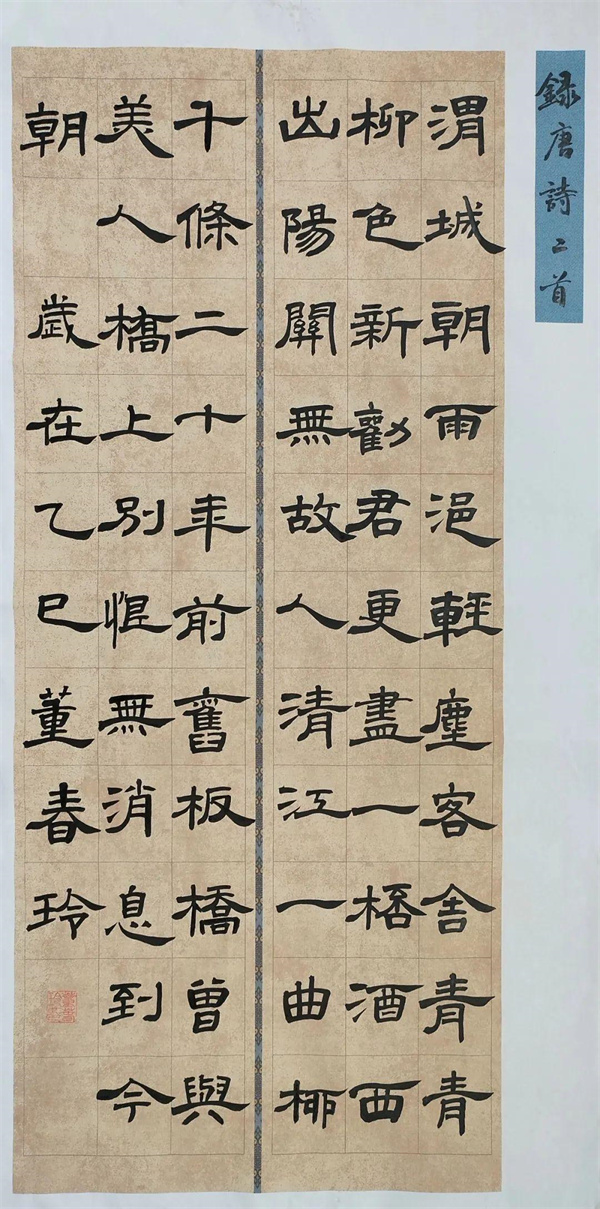 録唐詩二首
渭城朝雨浥輕塵客舍青青
柳色新勸君更盡一桮酒西
出陽關無故人清江一曲柳
千條二十年前舊板橋曾與
美人橋上別恨無消息到今
朝 歲在乙巳董春玲